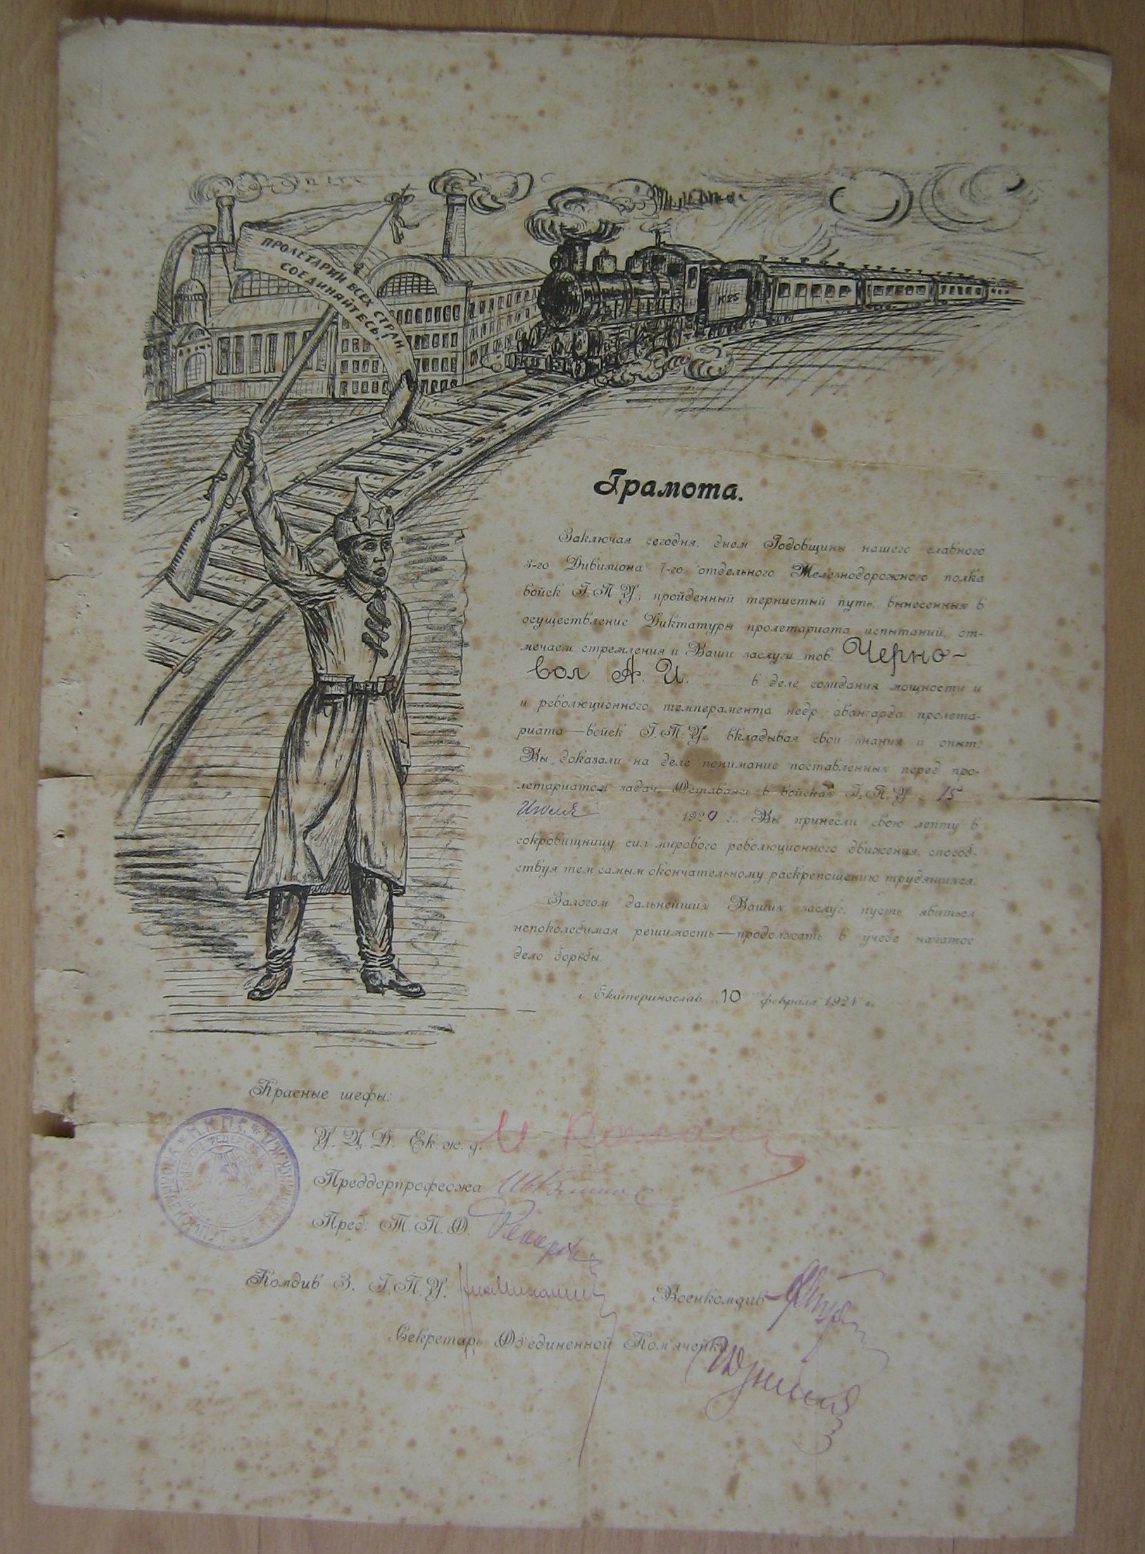 ПРОЛЕТАРИИ ВСЕХ СТРАН
СОЕДИНЯЙТЕСЬ
Грамота.
Заключая сегодня, днем Годовщины нашего славного
3-го Дивизиона 7-го отдельного Железнодорожного полка
войск Г.П.У. пройденный тернистый путь, вынесенных в
осуществление Диктатуры пролетариата испытаний, от-
мечаем стремления и Ваши заслуги тов. Черно-
вол А. И. в деле создания мощности и
и революционного темперамента недр авангарда пролета-
риата—войск Г.П.У. вкладывая свои знания и опыт.
Вы доказали на деле понимание поставленных перед про-
летариатом задач. в войсках Г.П.У. 15
Июля 1920 г. Вы принесли свою лепту в
сокровищницу сил мирового революционного движения, способ-
ствуя тем самым окончательному раскрепощению трудящихся.
Залогом дальнейших Ваших заслуг, пусть явиться
непоколебимая решимость—продолжать в учебе начатое
дело борьбы.
г. Екатеринослав 10 февраля
Красные шефы:
У. Ц. Д. Ек. ж. д.
Преддорпрофсожа
Пред. Т. П. О.
Комдив 3. Г.П.У.
Военкомдив
Секретарь Об'единенной Ком'ячейки